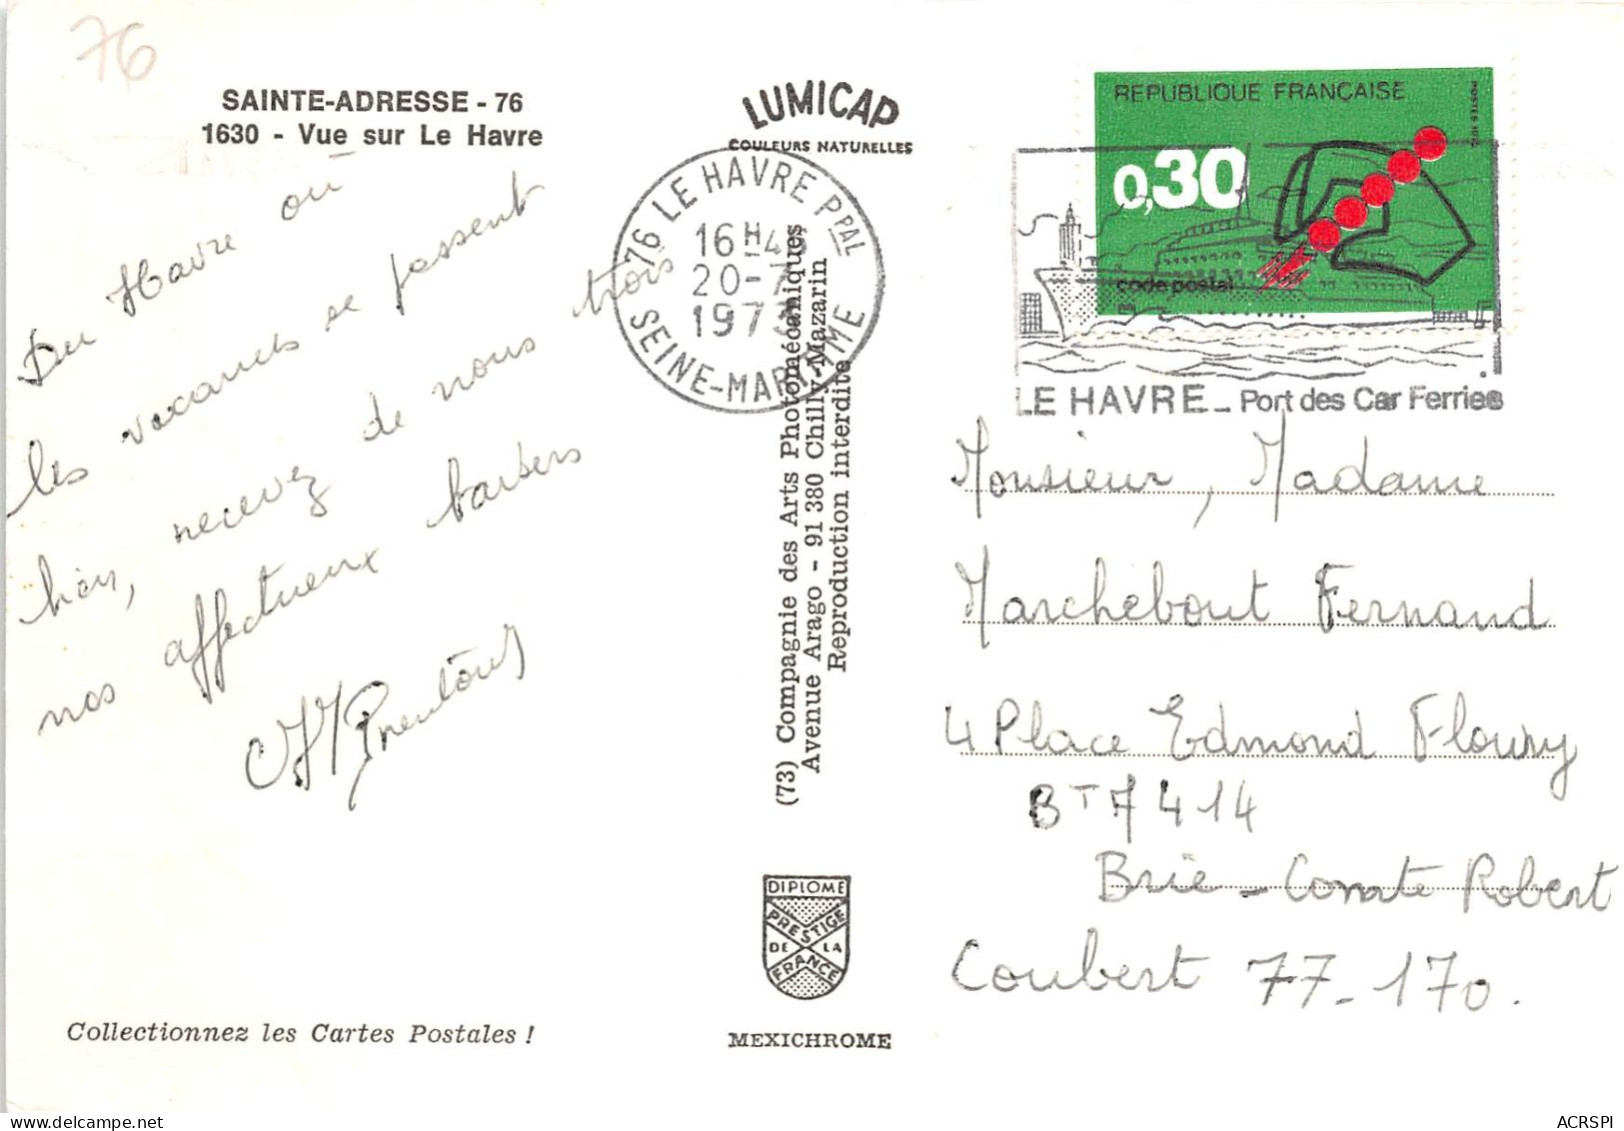 76
SAINTE-ADRESSE - 76
1630 - Vue sur Le Havre
Du Havre où
les vacances se passent
bien, recevez de nous trois
nos affectueux baisers
LUMICAP
COULEURS NATURELLES
76 LE HAVRE PPAL
16H4
20-7
1973
SEINE-MARITIME
(73) Compagnie des Arts Photomécaniques
Avenue Arago - 91 380 Chilly-Mazarin
Reproduction interdite
DIPLOME
PRESTIGE
DE LA
FRANCE
MEXICHROME
Collectionnez les Cartes Postales !
REPUBLIQUE FRANÇAISE
0,30
code postal
LE HAVRE - Port des Car Ferries
Monsieur, Madame
Marchebout Fernand
4 Place Edmond Floury
BT 7 414
Brie-Comte Robert
Coubert 77-170.
ACRSPI